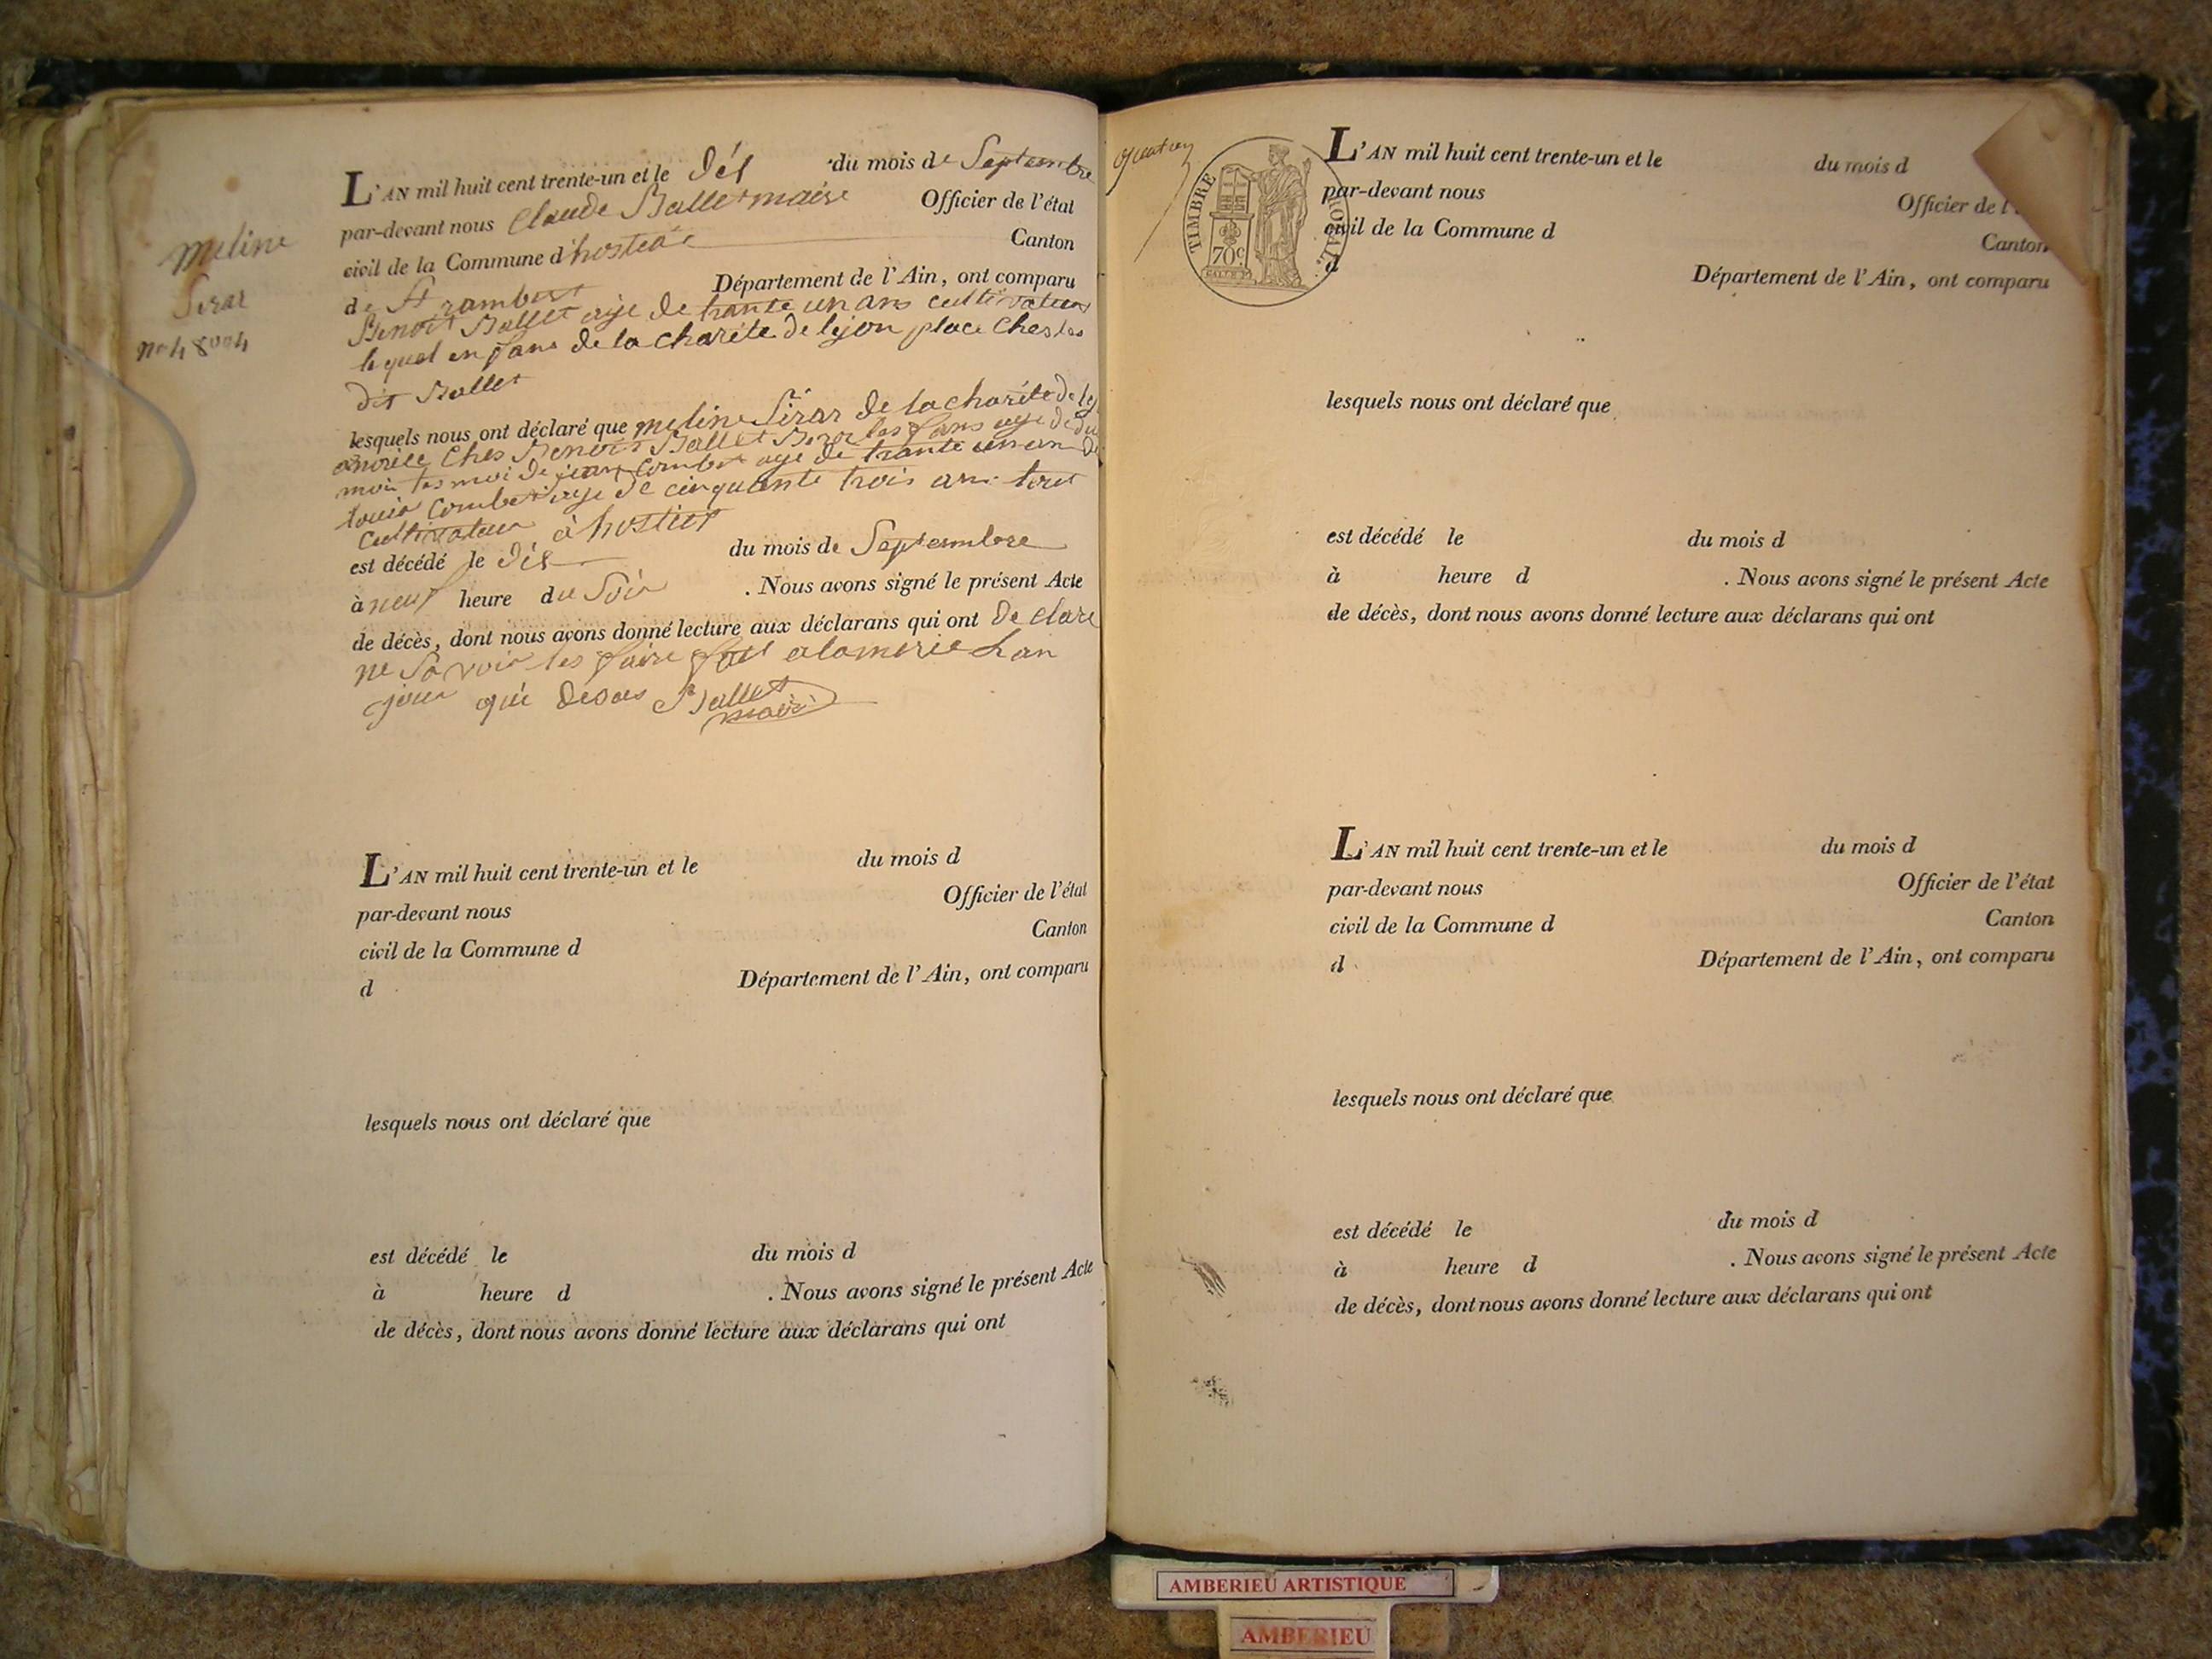 meline
Sirar
no 48004
L'AN mil huit cent trente-un et le dés du mois de Septembre
par-devant nous Claude Ballet maire Officier de l'état
civil de la Commune d'hostiaz Canton
de St rambert Département de l'Ain, ont comparu
Benoit Ballet age de trante un ans cultivateur
lequel enfans de la charité de lyon place Ches
dit Ballet
lesquels nous ont déclaré que meline Sirar de la charité de
Ches Benoit Ballet age de
moi de jean Combet age de trante un an
louis Combet age de cinquante trois ans
Cultivateur à hostias
est décédé le dés du mois de Septembre
à neuf heure du Soir . Nous avons signé le présent Acte
de décès, dont nous avons donné lecture aux déclarans qui ont de clare
ne Savoir les faire fait a la merie Lan
jour que desus Ballet
maire
L'AN mil huit cent trente-un et le du mois d
par-devant nous Officier de l'état
civil de la Commune d Canton
d Département de l'Ain, ont comparu
lesquels nous ont déclaré que
est décédé le du mois d
à heure d . Nous avons signé le présent Acte
de décès, dont nous avons donné lecture aux déclarans qui ont
TIMBRE ROYAL
70c
L'AN mil huit cent trente-un et le du mois d
par-devant nous Officier de l'
civil de la Commune d Canton
d Département de l'Ain, ont comparu
lesquels nous ont déclaré que
est décédé le du mois d
à heure d . Nous avons signé le présent Acte
de décès, dont nous avons donné lecture aux déclarans qui ont
L'AN mil huit cent trente-un et le du mois d
par-devant nous Officier de l'état
civil de la Commune d Canton
d Département de l'Ain, ont comparu
lesquels nous ont déclaré que
est décédé le du mois d
à heure d . Nous avons signé le présent Acte
de décès, dont nous avons donné lecture aux déclarans qui ont
AMBERIEU ARTISTIQUE
AMBERIEU